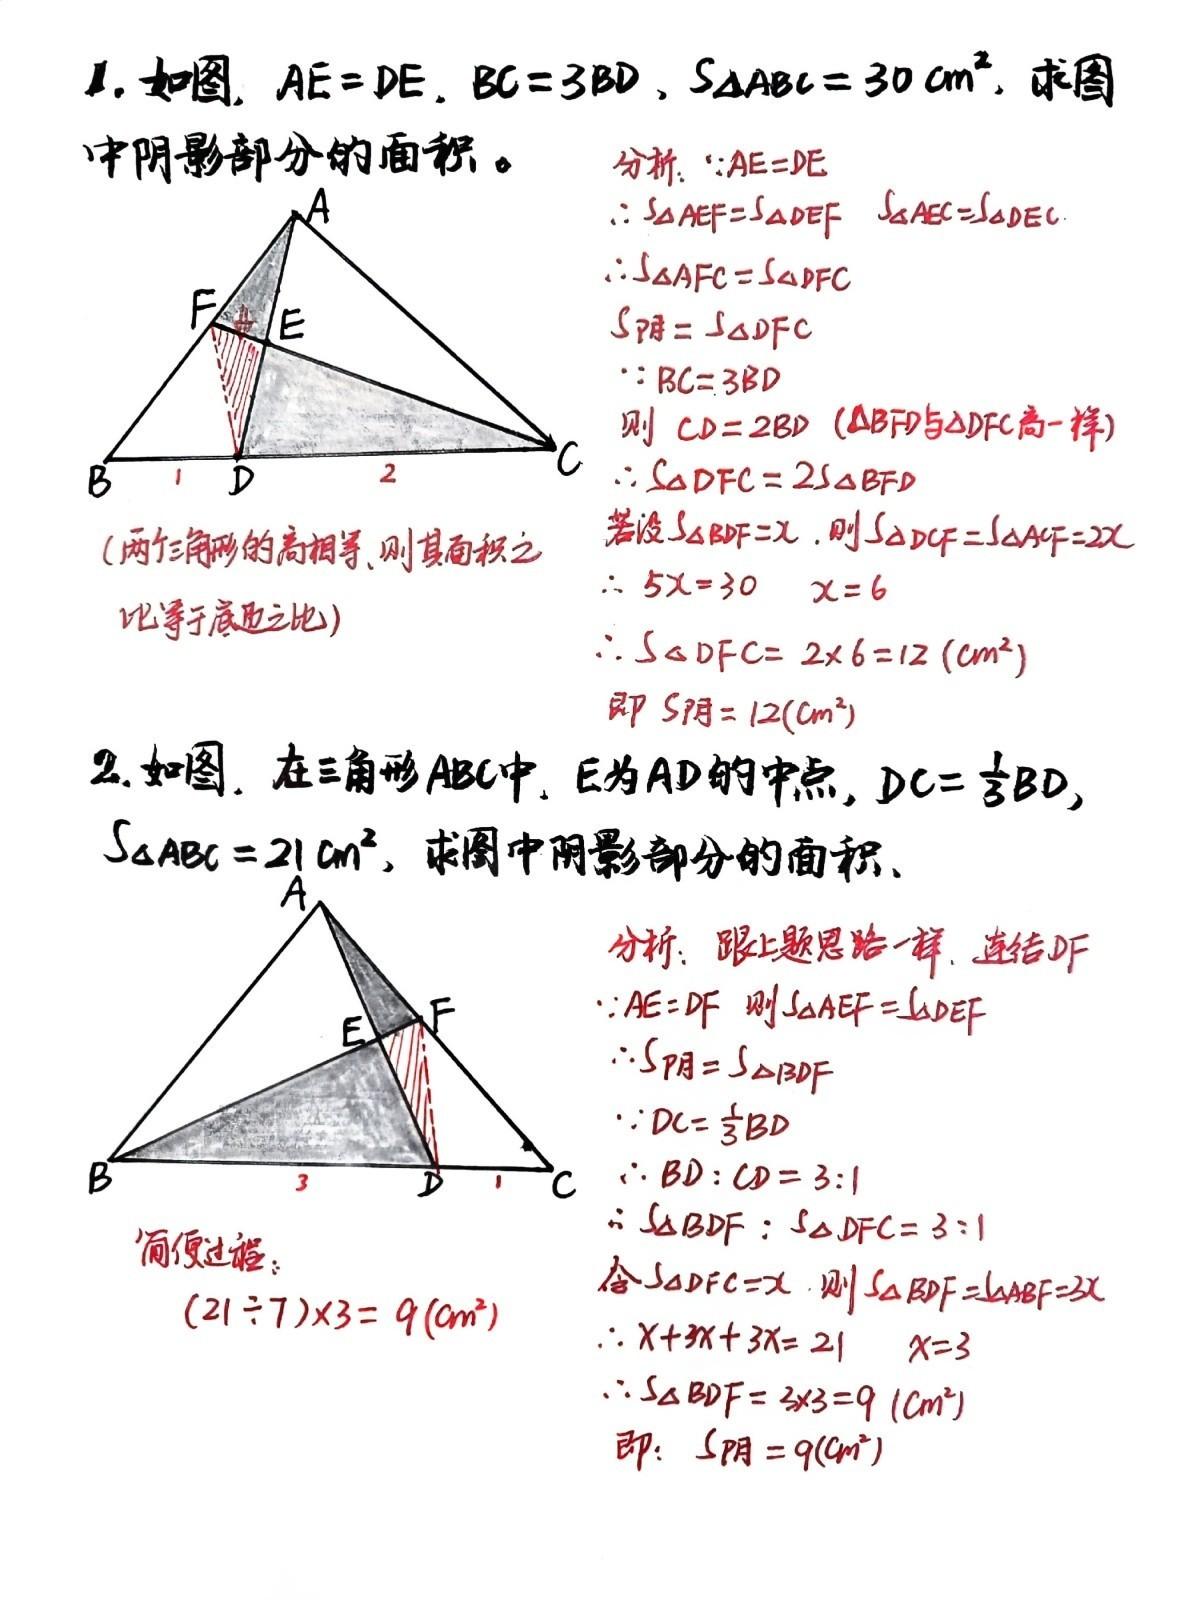 1. 如图, AE=DE, BC=3BD, S△ABC=30cm², 求图
中阴影部分的面积。
A
F
E
B
D
C
1
2
(两个三角形的高相等,则其面积之
比等于底边之比)
分析: ∵AE=DE
∴S△AEF=S△DEF S△AEC=S△DEC
∴S△AFC=S△DFC
S阴=S△DFC
∵BC=3BD
则 CD=2BD (△BFD与△DFC高一样)
∴S△DFC=2S△BFD
若设S△BDF=x,则S△DCF=S△ACF=2x
∴ 5x=30 x=6
∴S△DFC= 2×6=12 (cm²)
即 S阴=12(cm²)
2. 如图, 在三角形ABC中, E为AD的中点, DC=1/3BD,
S△ABC=21cm², 求图中阴影部分的面积、
A
E
F
B
D
C
3
1
简便过程:
(21÷7)×3=9(cm²)
分析: 跟上题思路一样, 连结DF
∵AE=DF 则S△AEF=S△DEF
∴S阴=S△BDF
∵DC=1/3BD
∴BD:CD=3:1
∴S△BDF:S△DFC=3:1
令S△DFC=x,则S△BDF=S△ABF=3x
∴x+3x+3x=21 x=3
∴S△BDF=3×3=9 (cm²)
即: S阴=9(cm²)